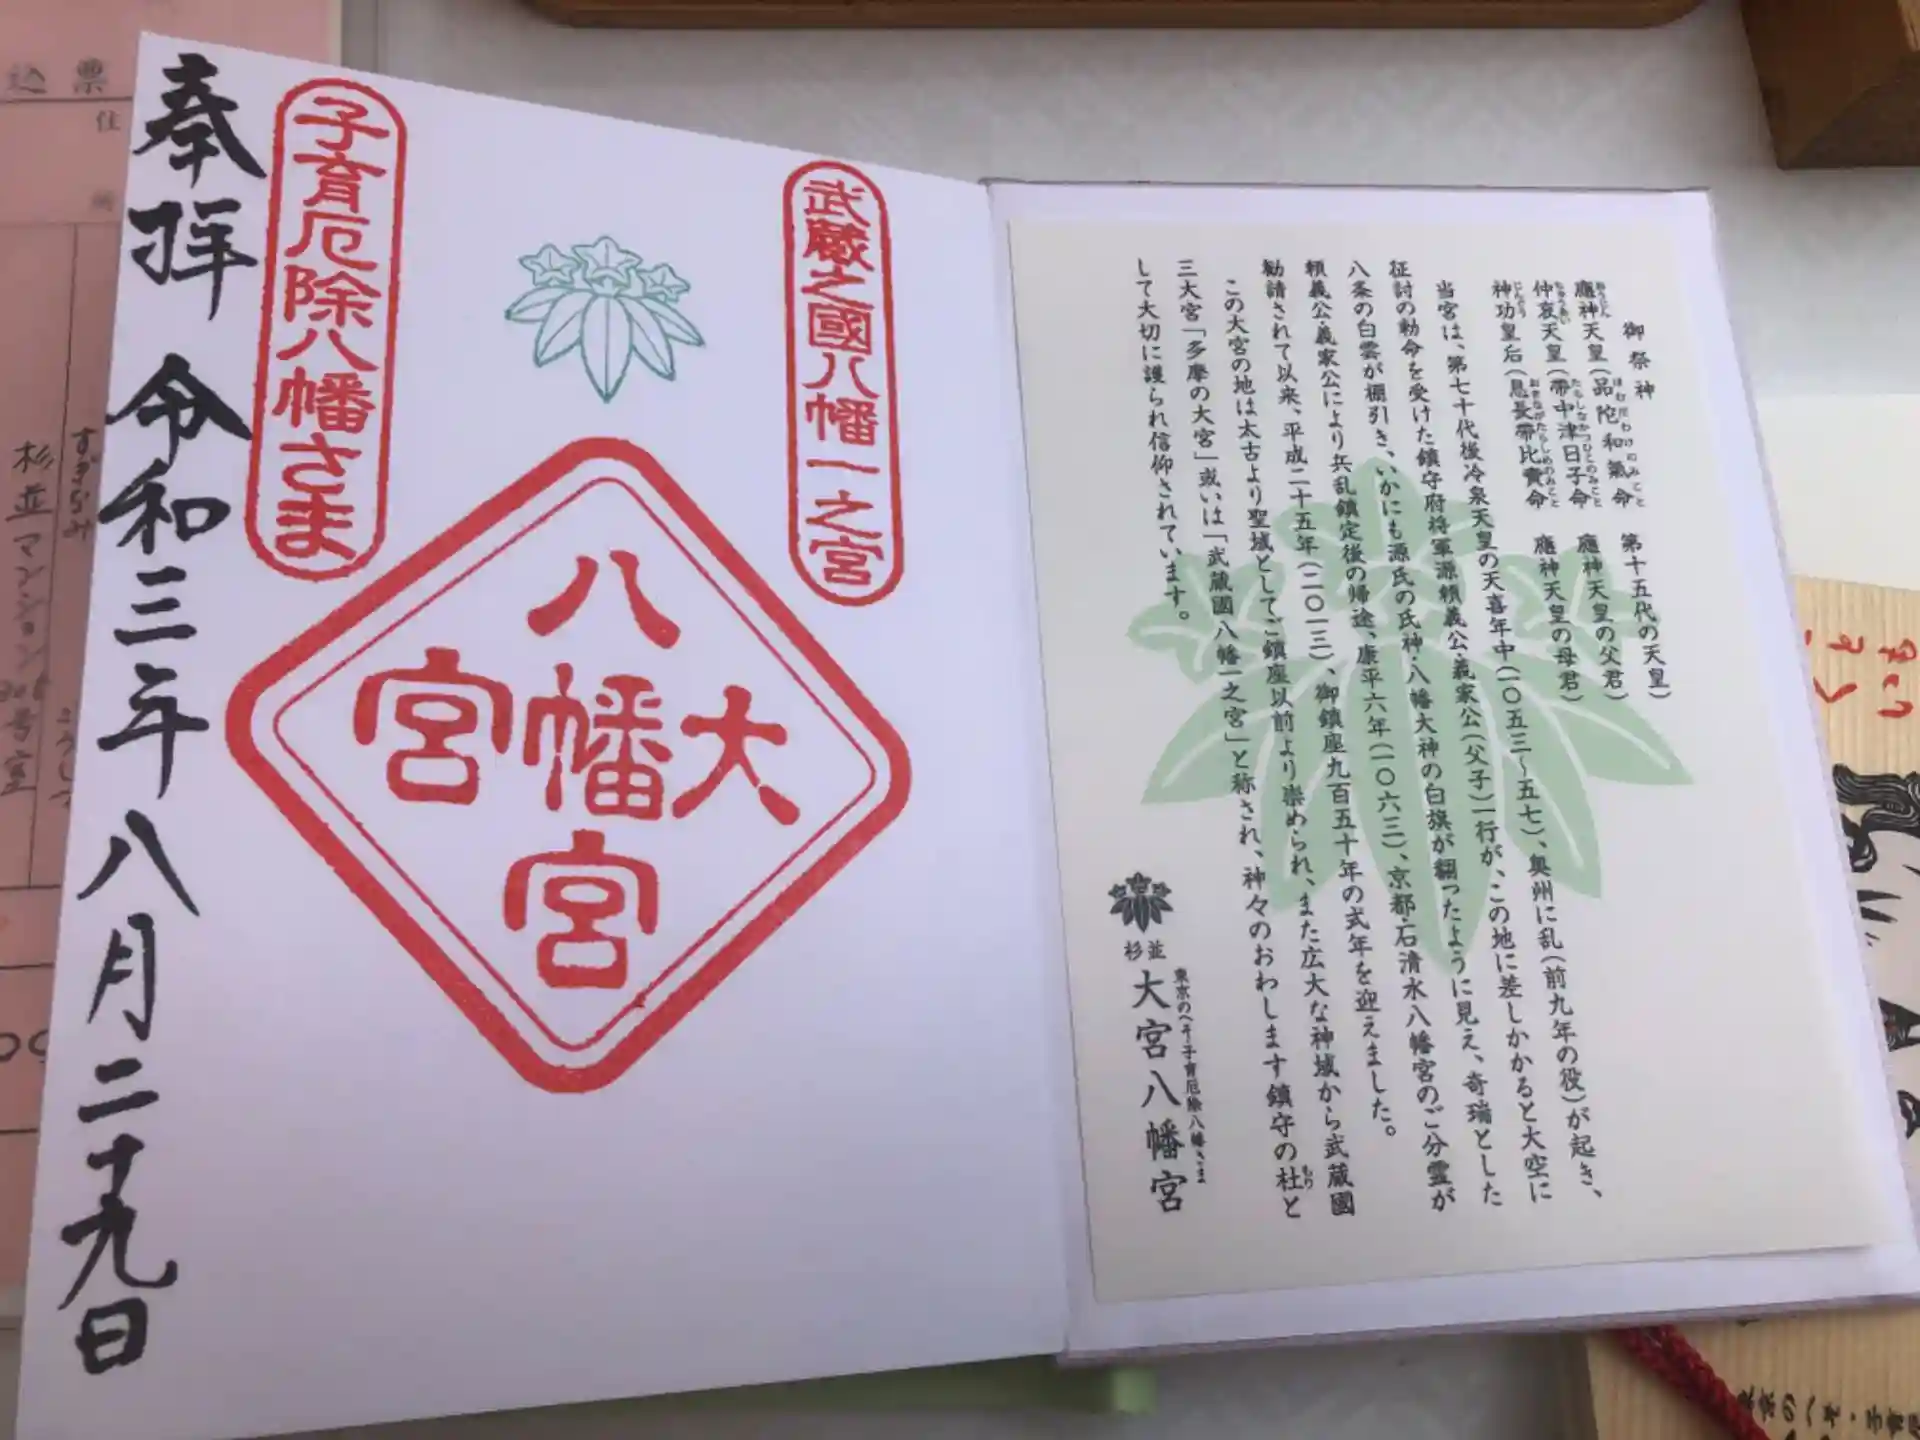 奉拝 令和三年八月二十九日
子育厄除八幡さま
武蔵之國八幡一之宮
大
八幡宮
宮
御祭神
應神天皇(品陀和氣命 第十五代の天皇)
おうじん ほむだわけのみこと
仲哀天皇(帶中津日子命 應神天皇の父君)
ちゅうあい たらしなかつひこのみこと
神功皇后(息長帶比賣命 應神天皇の母君)
じんぐう おきながたらしひめのみこと
当宮は、第七十代後冷泉天皇の天喜年中(一〇五三~五七)、奥州に乱(前九年の役)が起き、
征討の勅命を受けた鎮守府将軍源頼義公・義家公(父子)一行が、この地に差しかかると大空に
八条の白雲が棚引き、いかにも源氏の氏神・八幡大神の白旗が翻ったように見え、奇瑞とした
頼義公・義家公により兵乱鎮定後の帰途、康平六年(一〇六三)、京都・石清水八幡宮のご分霊が
勧請されて以来、平成二十五年(二〇一三)、御鎮座九百五十年の式年を迎えました。
この大宮の地は太古より聖域としてご鎮座以前より崇められ、また広大な神域から武蔵國
三大宮「多摩の大宮」或いは「武蔵國八幡一之宮」と称され、神々のおわします鎮守の杜と
もり
して大切に護られ信仰されています。
東京のへそ子育厄除八幡さま
杉並 大宮八幡宮
込票
住
所
すぎなみ
杉並マンション
号室